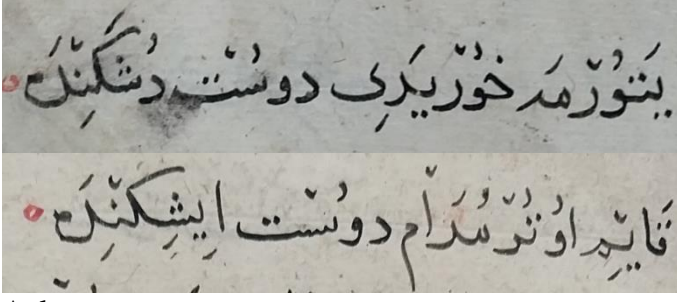 يَتوُرْمَدَ خوُرْ يَرِى دوسْت دُشَكِنْدَه
قَايِم اوُتُرْمُرَام دوسْت اِيشِكِنْدَه